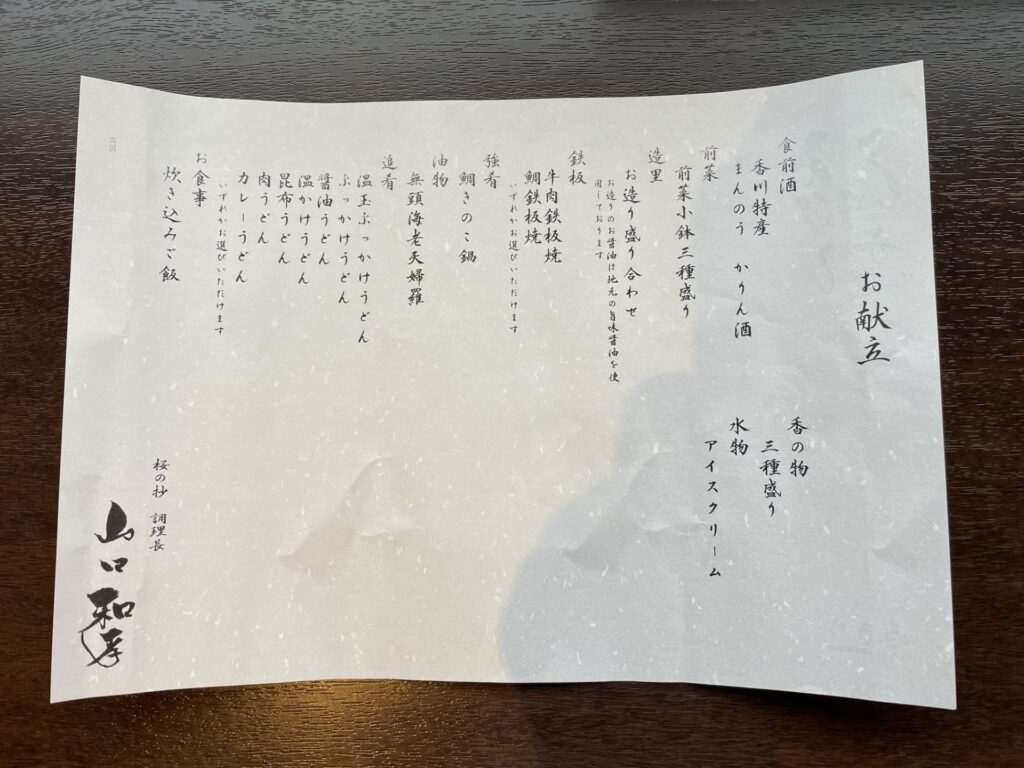 お献立
食前酒
香川特産
まんのう かりん酒
前菜
前菜小鉢三種盛り
造里
お造り盛り合わせ
お造りのお醤油は地元の旨味醤油を使
用しております
鉄板
牛肉鉄板焼
鯛鉄板焼
いずれかお選びいただけます
強肴
鯛きのこ鍋
油物
無頭海老天婦羅
追肴
温玉ぶっかけうどん
ぶっかけうどん
醤油うどん
温かけうどん
昆布うどん
肉うどん
カレーうどん
いずれかお選びいただけます
お食事
炊き込みご飯
香の物
三種盛り
水物
アイスクリーム
桜の抄 調理長
山口和孝